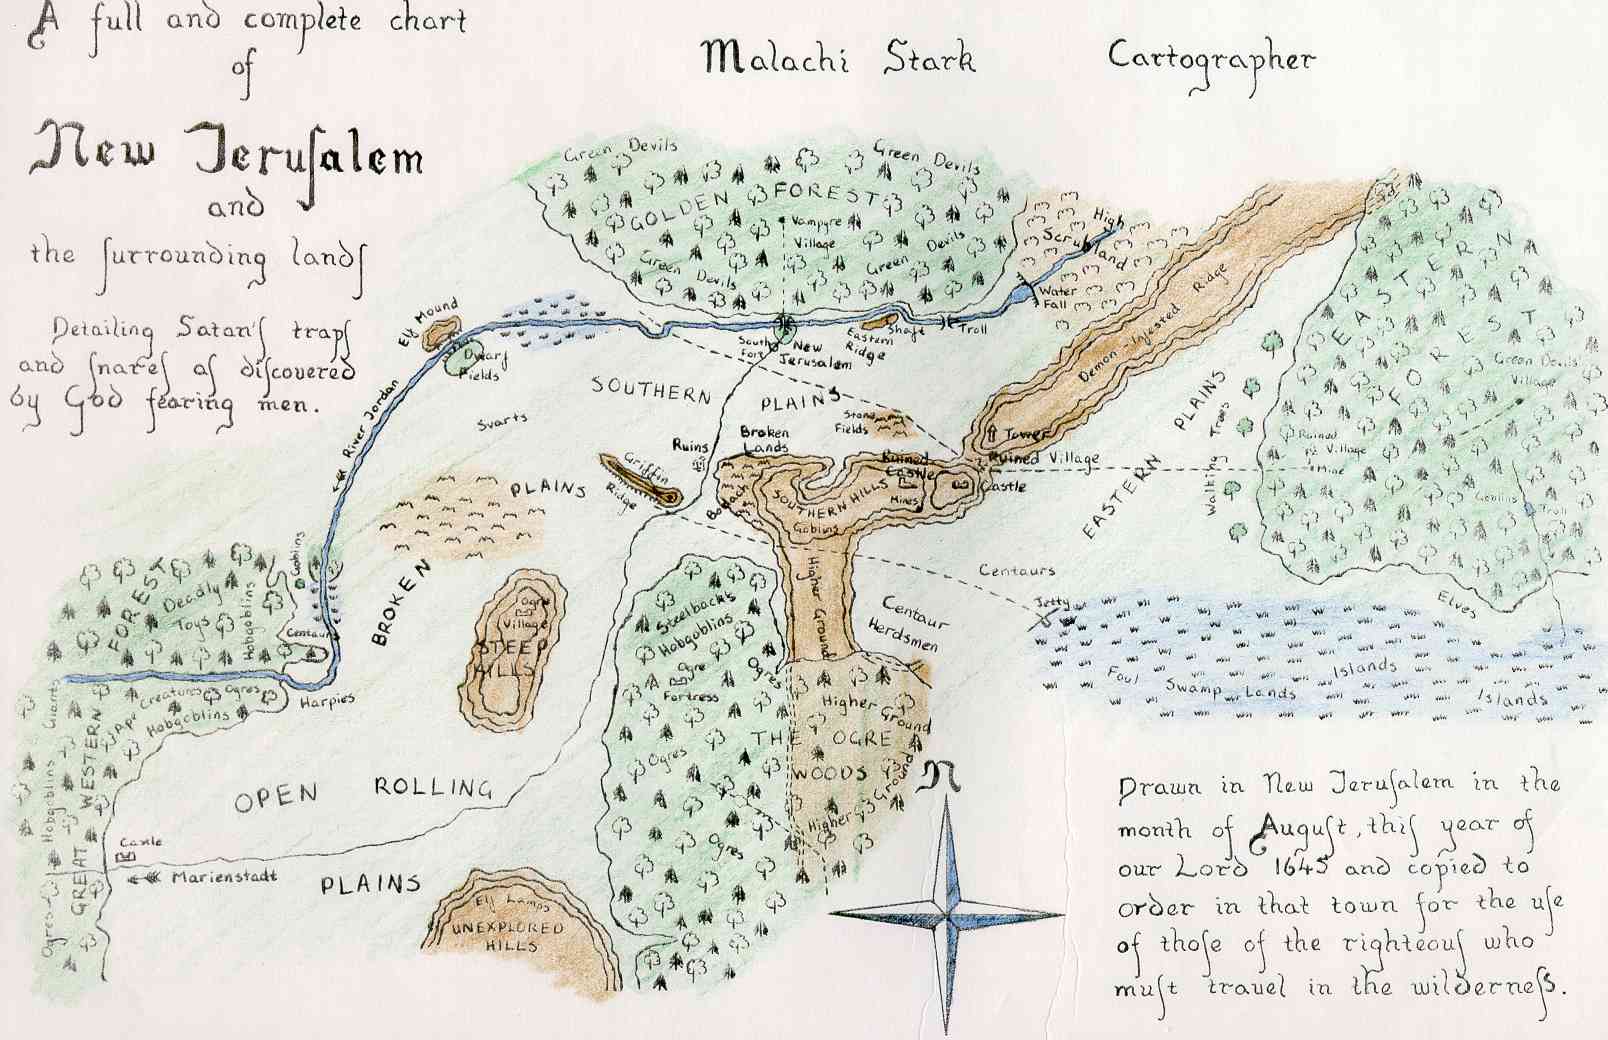 A full and complete chart
of
New Jeruſalem
and
the ſurrounding landſ
Detailing Satan'ſ trapſ
and ſnareſ aſ diſcovered
by God fearing men.
Malachi Stark Cartographer
Green Devils
Green Devils
GOLDEN FOREST
Vampyre
Village
Green Devils
Green Devils
High
Scrubland
Water
Fall
Troll
Eastern Shaft
Ridge
South
Fort
New
Jerusalem
Elf Mound
Dwarf
Fields
River Jordan
SOUTHERN
PLAINS
Svarts
Stone
Fields
Demon-Infested Ridge
Tower
Ruined Village
Castle
Ruined
Castle
Mines
Broken
Lands
Ruins
Griffin
Ridge
SOUTHERN HILLS
Goblins
Higher Ground
EASTERN PLAINS
Walking Trees
EASTERN
FOREST
Green Devils'
Village
Ruined
Village
Mine
Goblins
Troll
Elves
Centaurs
Centaur
Herdsmen
Jetty
Foul Swamp Lands
Islands
Islands
BROKEN
PLAINS
Goblins
Centaur
Harpies
Deadly
Toys
Hobgoblins
FOREST
GREAT WESTERN
Creatures
Ogres
Hobgoblins
Hobgoblins
Ogres
Ogre
Village
STEEP
HILLS
Steelbacks
Hobgoblins
Ogre
Fortress
Ogres
Ogres
Ogres
THE OGRE
WOODS
Higher Ground
Higher Ground
OPEN ROLLING
PLAINS
Castle
Marienstadt
Elf Lamps
UNEXPLORED
HILLS
N
Drawn in New Jeruſalem in the
month of Auguſt, this year of
our Lord 1645 and copied to
order in that town for the uſe
of thoſe of the righteouſ who
muſt travel in the wilderneſſ.